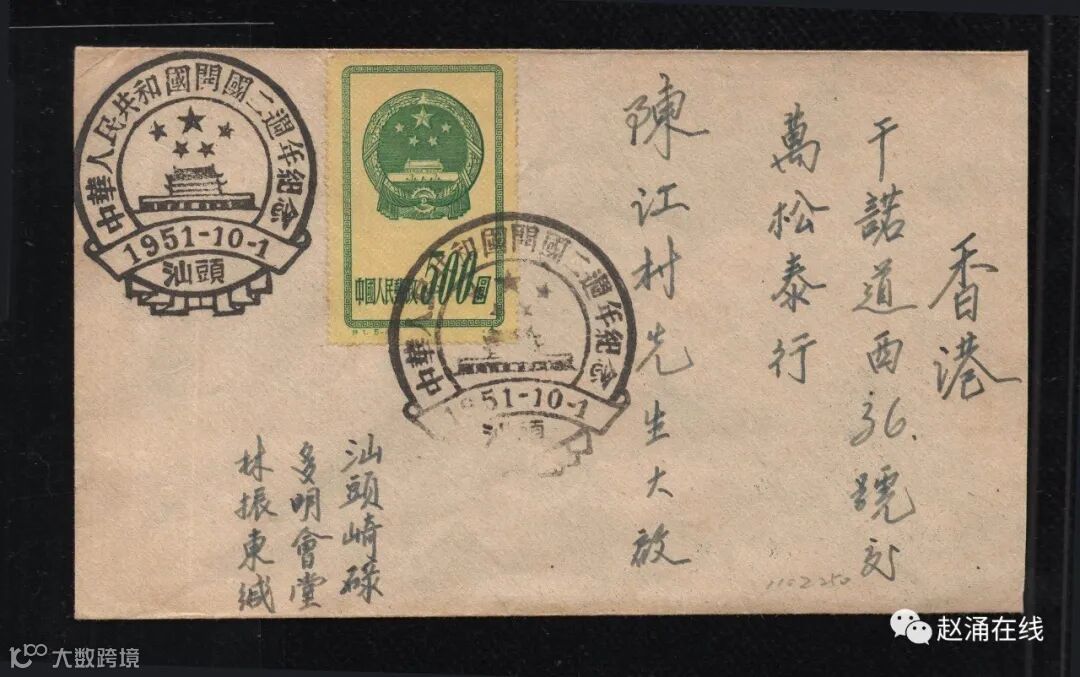 香港
干諾道西36.號
萬松泰行
陳江村先生大啟
汕頭崎碌
多明會堂
林振東緘
中華人民共和國開國二週年紀念
1951-10-1
汕頭
中國人民郵政500圓
中華人民共和國開國二週年紀念
1951-10-1
汕頭
1102250
赵涌在线
10100 大数跨境